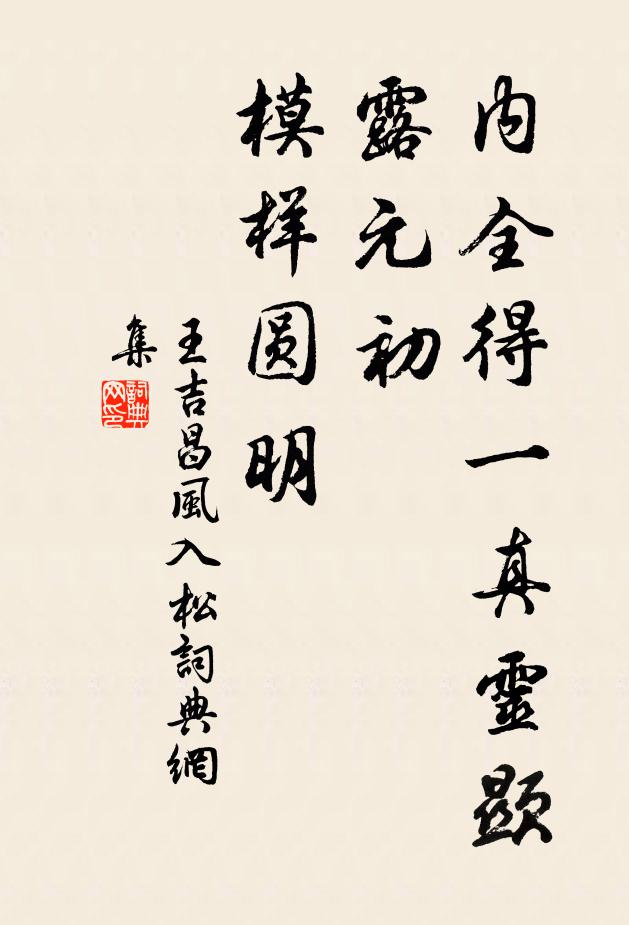 内全得一真靈顯
露元初
模样圆明
王吉昌風入松詞典網
集
詞典網印